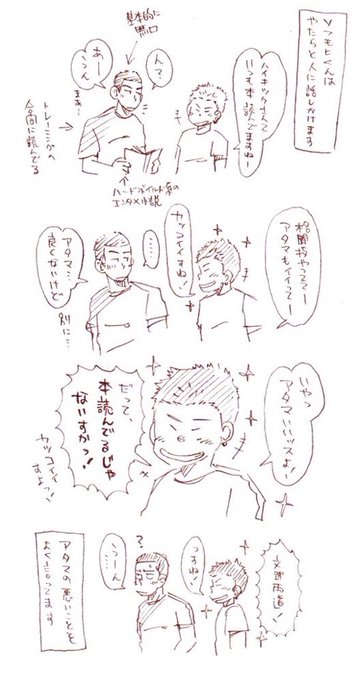 ソフモヒくんは
やたらと人に話しかけます
ハイキックさんて
いつも本読んでますねー
基本的に
無口
ん？
あー
うん
まあ…
トレーニングの
合間に読んでる
ハードボイルド系の
エンタメ小説
格闘技やっててー
アタマもイイってー
カッコイイすね！
……
アタマ…
良くないけど
別に…
いやっ
アタマいいッスよ！
だって、
本読んでるじゃ
ないすかっ！
カッコイイ
すよっ！
文武両道！
っすね！
？
うーん
アタマの悪いことを
よく言ってます